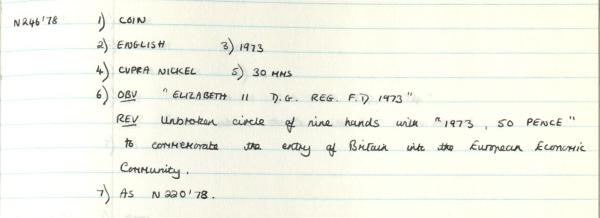 N246'78 1) COIN
2) ENGLISH 3) 1973
4) CUPRA NICKEL 5) 30 MMS
6) OBV "ELIZABETH II D.G. REG. F.D 1973"
REV Unbroken circle of nine hands with "1973, 50 PENCE"
to commemorate the entry of Britain into the European Economic
Community.
7) AS N220'78.